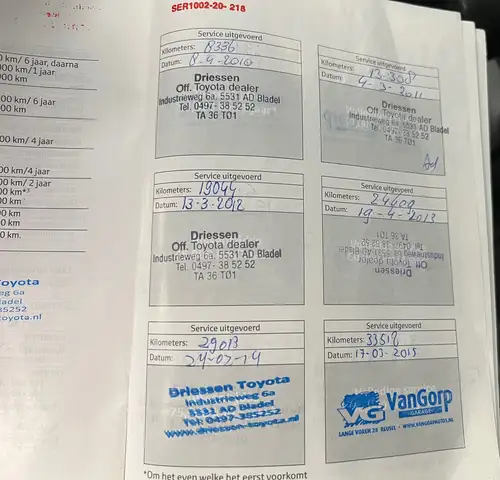 SER1002-20- 218
0 km/ 6 jaar, daarna
000 km/1 jaar
000 km
00 km/ 6 jaar
00 km
00 km/ 4 jaar
00 km/4 jaar
00 km/ 2 jaar
00 km*³
00 km
00 km
0 km
0 km.
oyota
eg 6a
ladel
85252
oyota.nl
Service uitgevoerd
Kilometers: 8336
Datum: 8-4-2010
Driessen
Off. Toyota dealer
Industrieweg 6a, 5531 AD Bladel
Tel. 0497- 38 52 52
TA 36 T01
Service uitgevoerd
Kilometers:
Datum: 4-3-2011
Driessen
Off. Toyota dealer
Industrieweg 6a, 5531 AD Bladel
Tel. 0497- 38 52 52
TA 36 T01
Service uitgevoerd
Kilometers: 19044
Datum: 13-3-2012
Driessen
Off. Toyota dealer
Industrieweg 6a, 5531 AD Bladel
Tel. 0497- 38 52 52
TA 36 T01
Service uitgevoerd
Kilometers: 24400
Datum: 19-4-2013
Driessen
Off. Toyota dealer
Industrieweg 6a, 5531 AD Bladel
Tel. 0497- 38 52 52
TA 36 T01
Service uitgevoerd
Kilometers: 29013
Datum: 24-02-14
Driessen Toyota
Industrieweg 6a
5531 AD Bladel
Tel: 0497-385252
www.driessen-toyota.nl
Service uitgevoerd
Kilometers: 33518
Datum: 17-03-2015
VG VanGorp
GARAGE
LANGE VOREN 28 REUSEL - WWW.VANGORPAUTOS.NL
*Om het even welke het eerst voorkomt